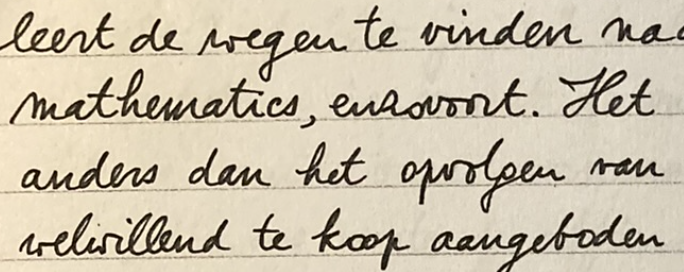 leert de wegen te vinden naa
mathematics, enzovoort. Het
anders dan het opvolgen van
welwillend te koop aangeboden